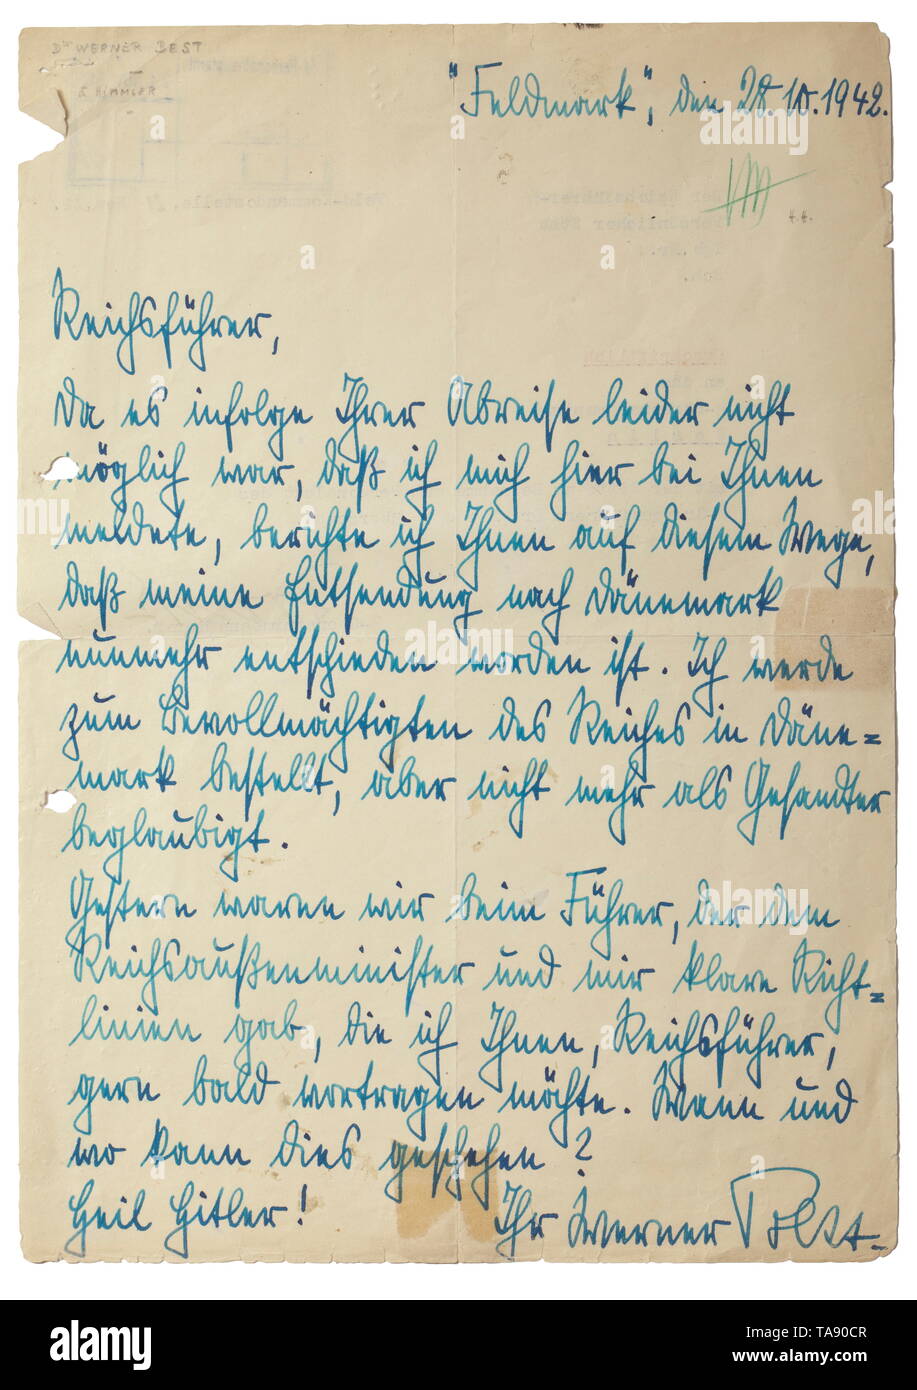 Dr WERNER BEST
HIMMLER
"Feldmark", den 28.10.1942.
Reichsführer,
Da es infolge Ihrer Abreise leider nicht
möglich war, daß ich mich hier bei Ihnen
meldete, berichte ich Ihnen auf diesem Wege,
daß meine Entsendung nach Dänemark
nunmehr entschieden worden ist. Ich werde
zum Bevollmächtigten des Reiches in Däne=
mark bestellt, aber nicht mehr als Gesandter
beglaubigt.
Gestern waren wir beim Führer, der dem
Reichsaußenminister und mir klare Richt=
linien gab, die ich Ihnen, Reichsführer,
gern bald vortragen möchte. Wann und
wo kann dies geschehen?
Heil Hitler! Ihr Werner Best.
alamy
Image ID: TA90CR
www.alamy.com